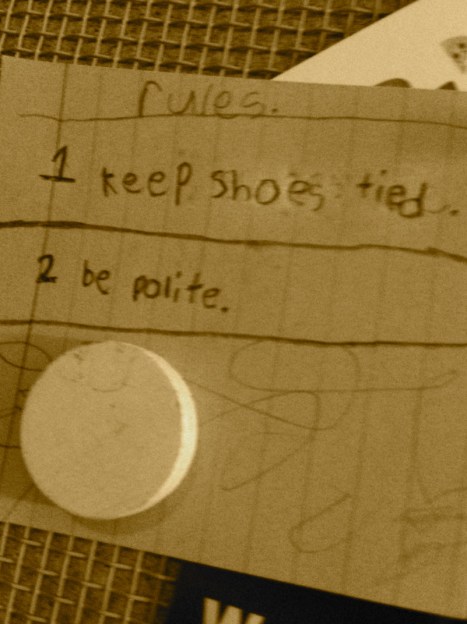 rules.
1 keep shoes tied.
2 be polite.
W